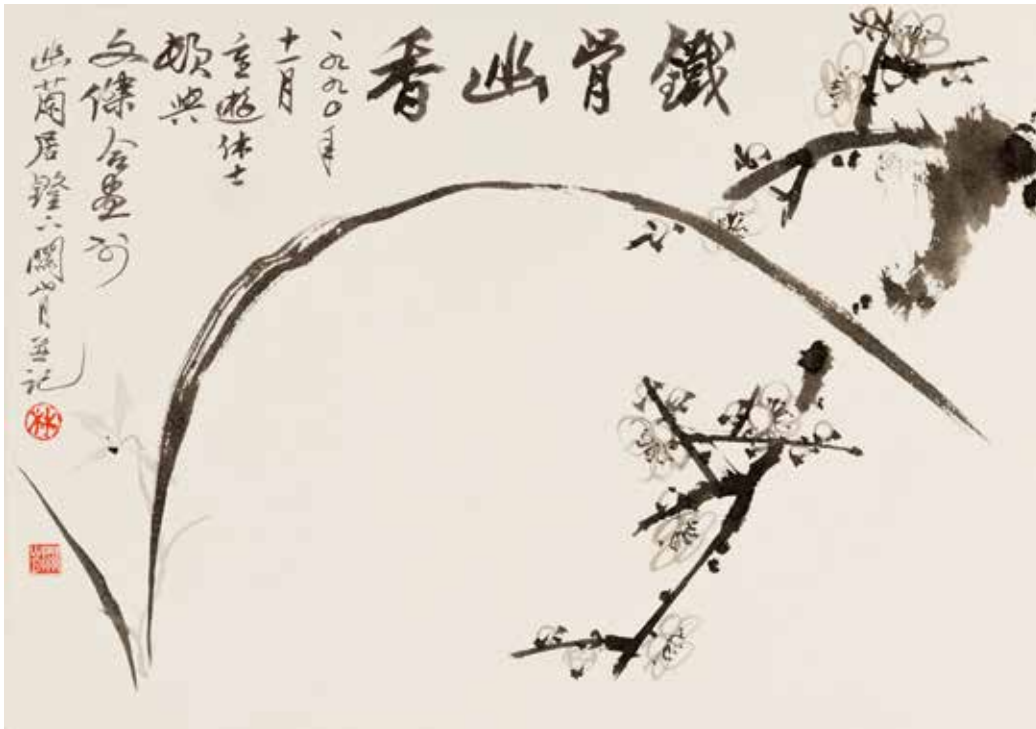 鐵骨幽香
一九九〇年
十一月
重遊休士
頓與
文傑合畫於
幽蘭居鐙下關山月並記
林